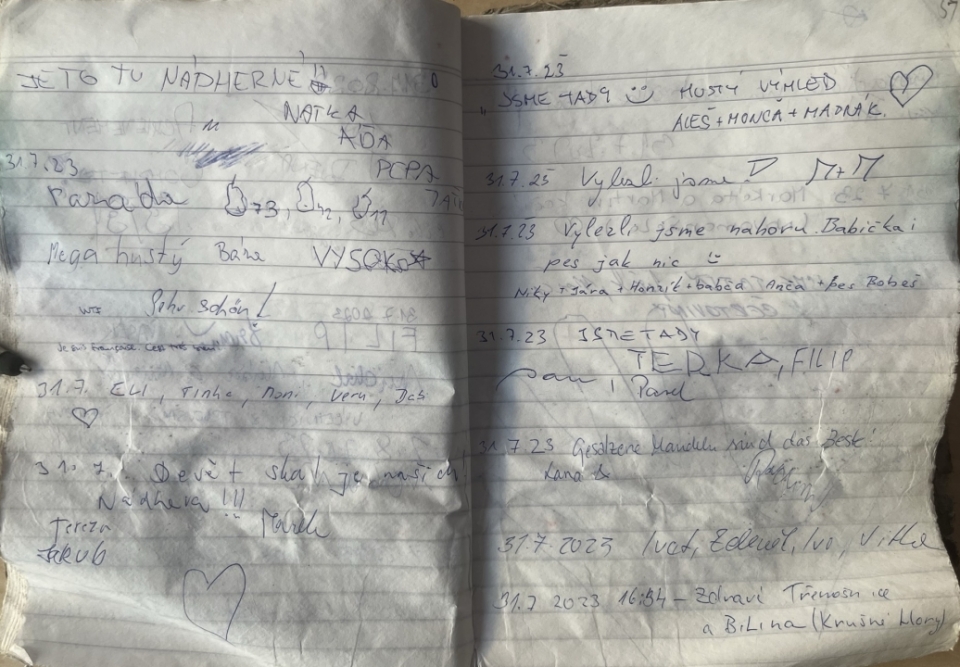 JE TO TU NÁDHERNÉ!!
NATKA
ÁĎA
PEPA
31.7.23
Paráda 73, 42, 11
Mega hustý Bára VYSOKO
Sehr schön!
31.7. ELI, Tinka, Moni, Veru, Dáš
31.7. Devět skal je našich!
Nádhera!!!
Tereza Marek
Jakub
57
31.7.23
JSME TADY HUSTÝ VÝHLED
ALEŠ + MONČA + MADNÁK.
31.7.23 Vylezli jsme. M+M
31.7.23 Vylezli jsme nahoru. Babička i
pes jak nic
Niky + Jára + Honzík + babča Anča + pes Bobeš
31.7.23 JSME TADY
TERKA, FILIP
Pavel
31.7.23 Gesalzene Mandeln sind das Beste!
Jana &
31.7.2023 Ivet, Zdeněk, Ivo, Vitka
31.7 2023 16:54 - Zdraví Třemošnice
a Bílina (Krušné Hory)